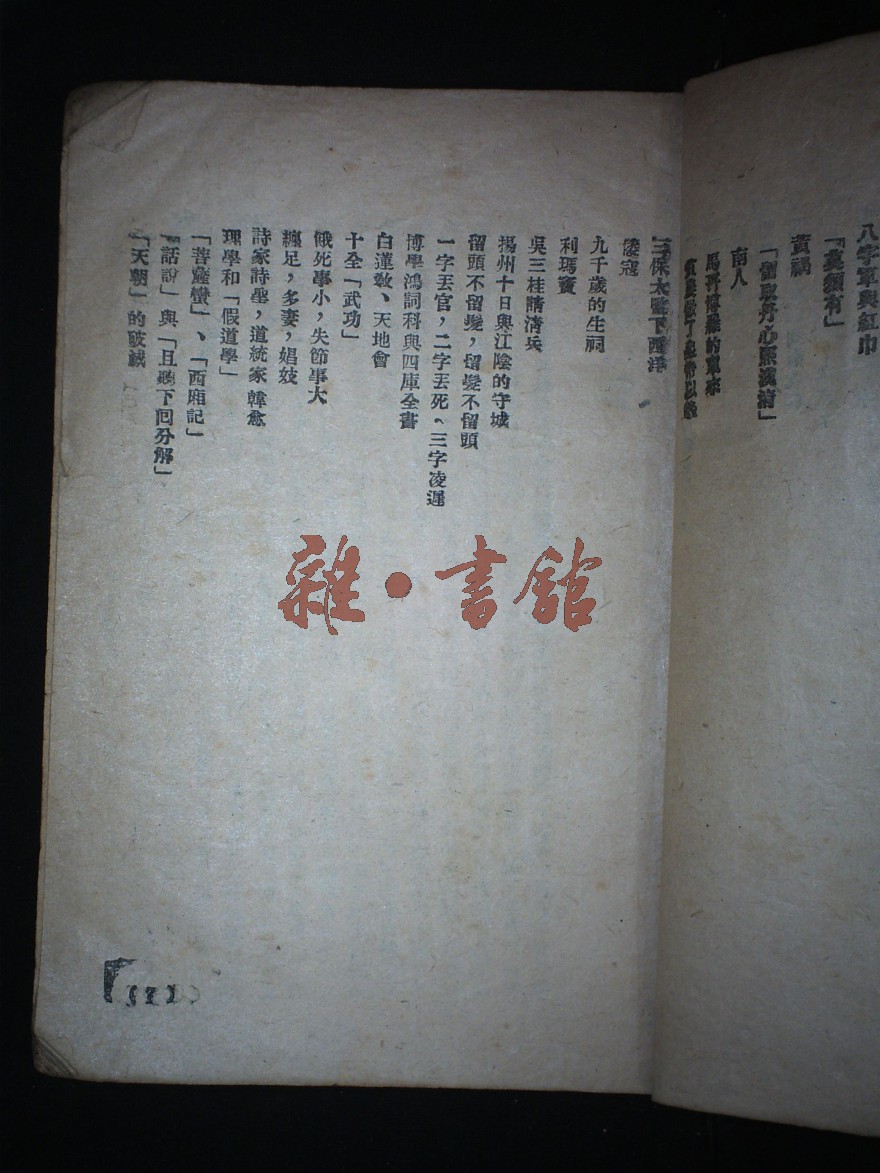 八字軍與紅巾
「莫須有」
黃禍
「留取丹心照汗清」
南人
馬哥博羅的
三保太監下西洋
倭寇
九千歲的生祠
利瑪竇
吳三桂請清兵
揚州十日與江陰的守城
留頭不留髮，留髮不留頭
一字丟官，二字丟死、三字凌遲
博學鴻詞科與四庫全書
白蓮敎、天地會
十全「武功」
餓死事小，失節事大
纏足，多妻，娼妓
詩家詩聖，道統家韓愈
理學和「假道學」
「菩薩蠻」、「西廂記」
「話說」與「且聽下回分解」
「天朝」的破滅
雜·書館